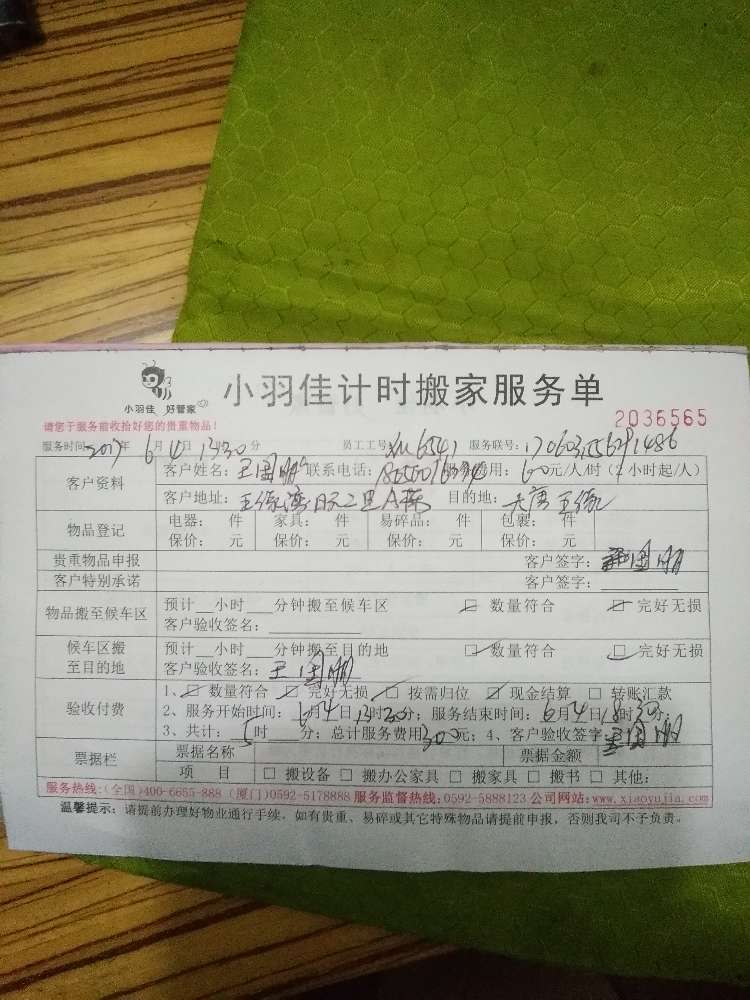 小羽佳 好管家
小羽佳计时搬家服务单
请您于服务前收拾好您的贵重物品!
2036565
服务时间 2017年 6月4日 13 30分 员工工号: 6541 服务联号:
客户资料 客户姓名: 王国鹏 联系电话: 费用: 60元/人/时(2小时起/人)
客户地址: 目的地:
物品登记 电器: 件 家具: 件 易碎品: 件 包裹: 件
保价: 元 保价: 元 保价: 元 保价: 元
贵重物品申报 客户签字: 王国鹏
客户特别承诺 客户签字:
物品搬至候车区 预计__小时___分钟搬至候车区 ☑ 数量符合 ☑ 完好无损
客户验收签名:
候车区搬至目的地 预计__小时___分钟搬至目的地 ☑ 数量符合 ☑ 完好无损
客户验收签名: 王国鹏
验收付费 1、☑ 数量符合 ☑ 完好无损 ☑ 按需归位 ☑ 现金结算 □ 转账汇款
2、服务开始时间: 6月4日13时30分; 服务结束时间: 6月4日18时30分;
3、共计: 5时 分; 总计服务费用300元; 4、客户验收签字: 王国鹏
票据栏 票据名称 票据金额
项 目 □ 搬设备 □ 搬办公家具 □ 搬家具 □ 搬书 □ 其他:
服务热线:(全国)400-6655-888 (厦门)0592-5178888 服务监督热线:0592-5888123 公司网站:www.xiaoyujia.com
温馨提示: 请提前办理好物业通行手续。如有贵重、易碎或其它特殊物品请提前申报,否则我司不予负责。